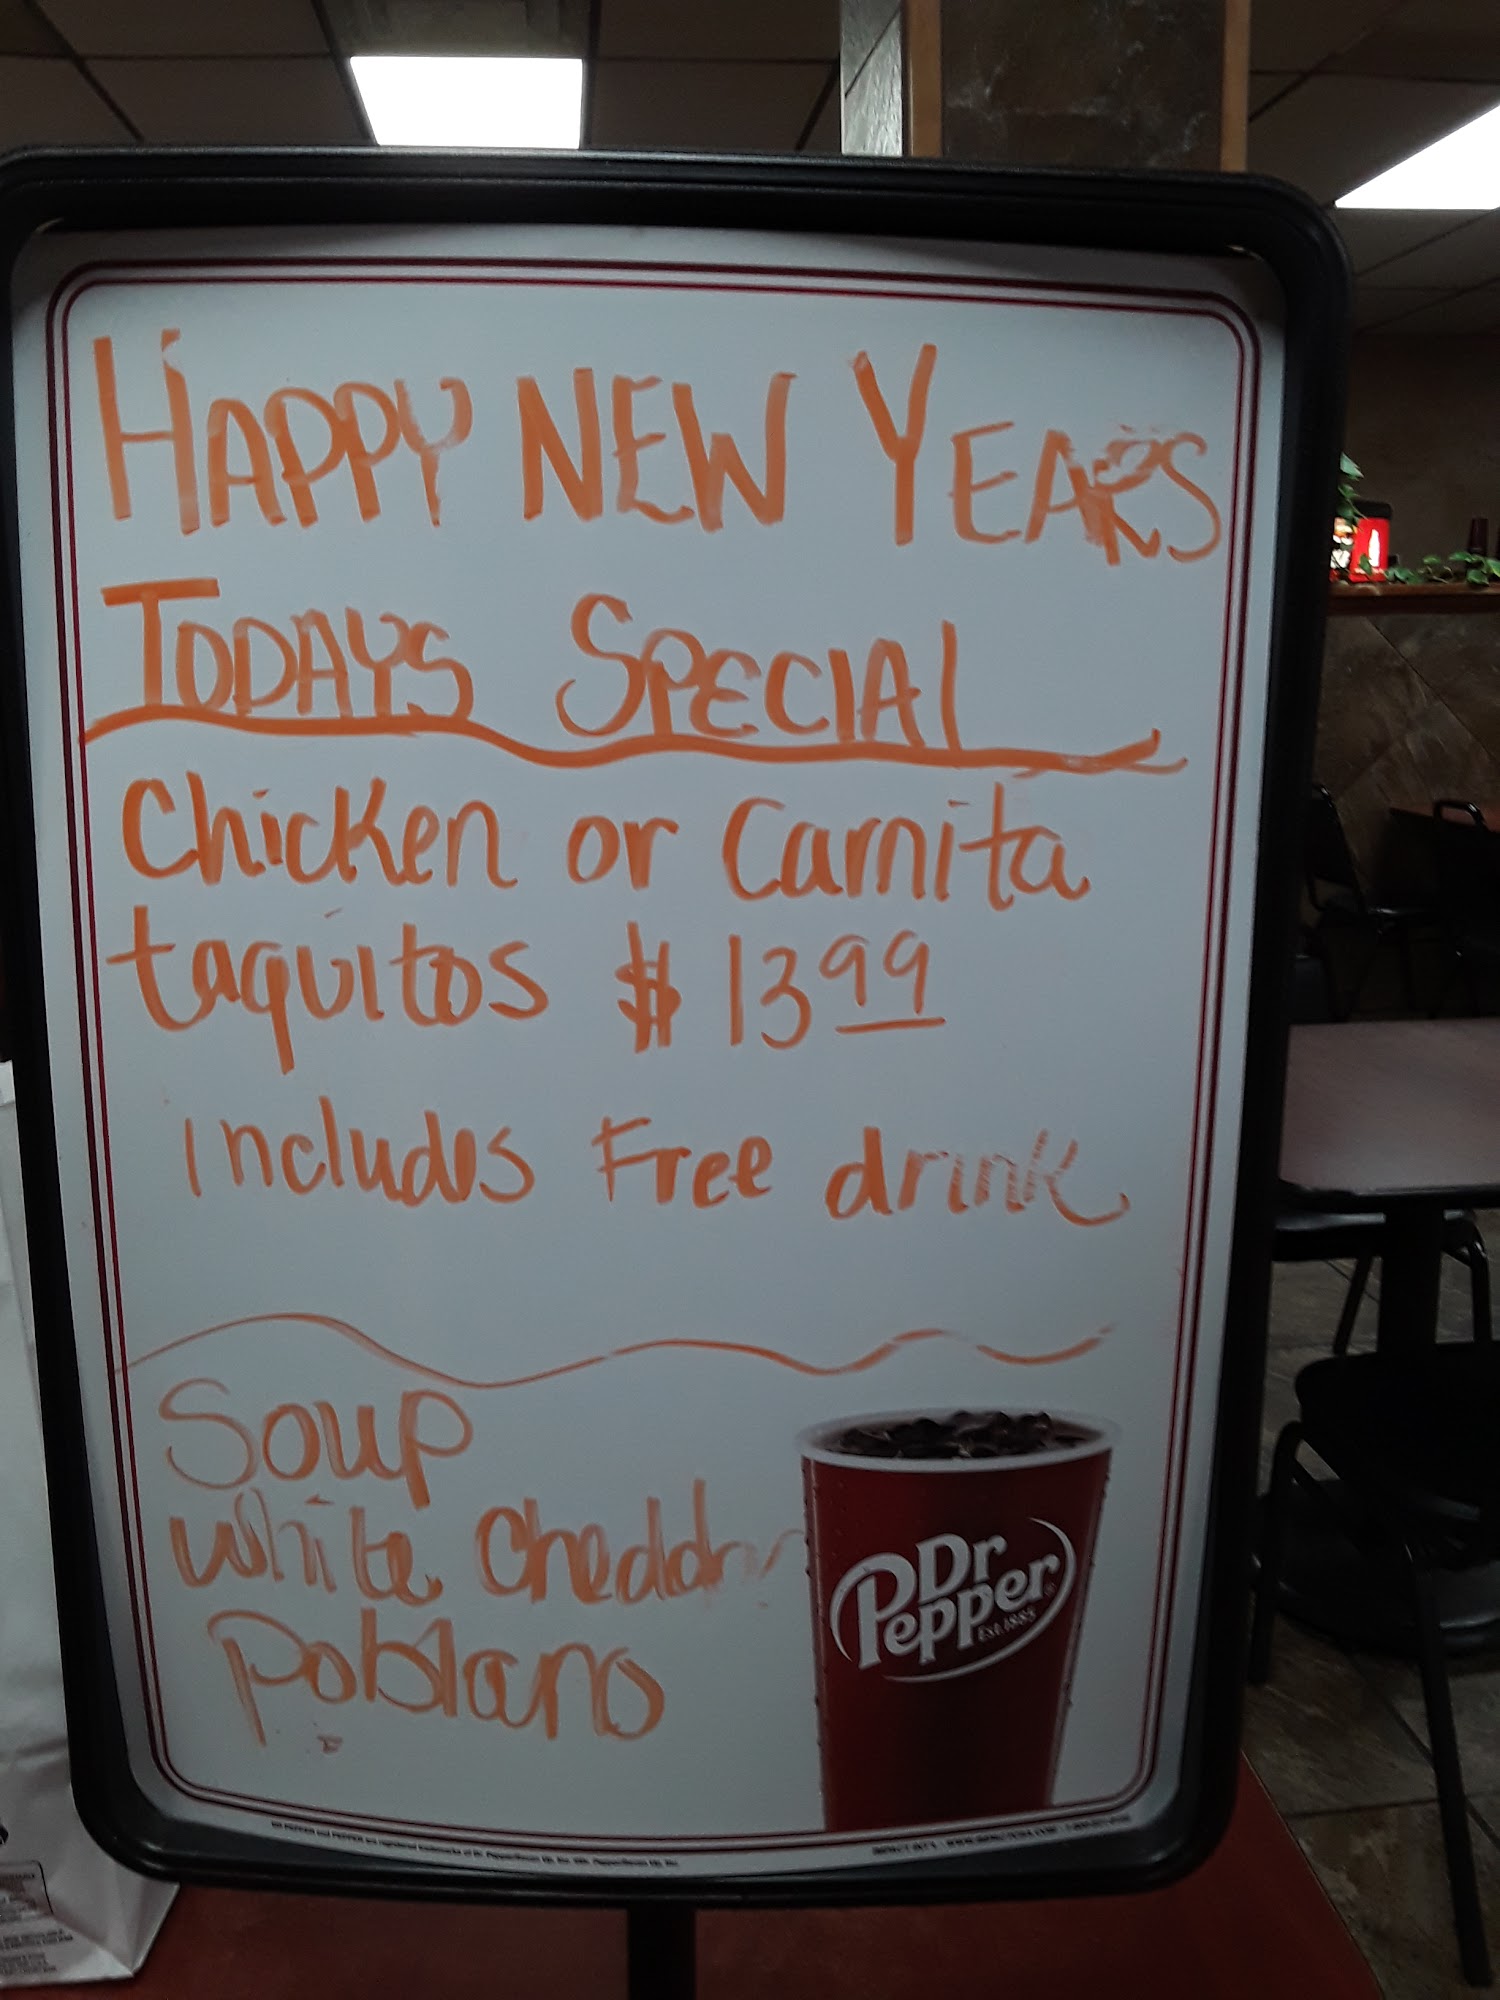 HAPPY NEW YEARS
TODAYS SPECIAL
Chicken or Carnita
taquitos $ 13 99
includes Free drink
Soup
white Cheddr
Poblano
Dr
Pepper
Est. 1885